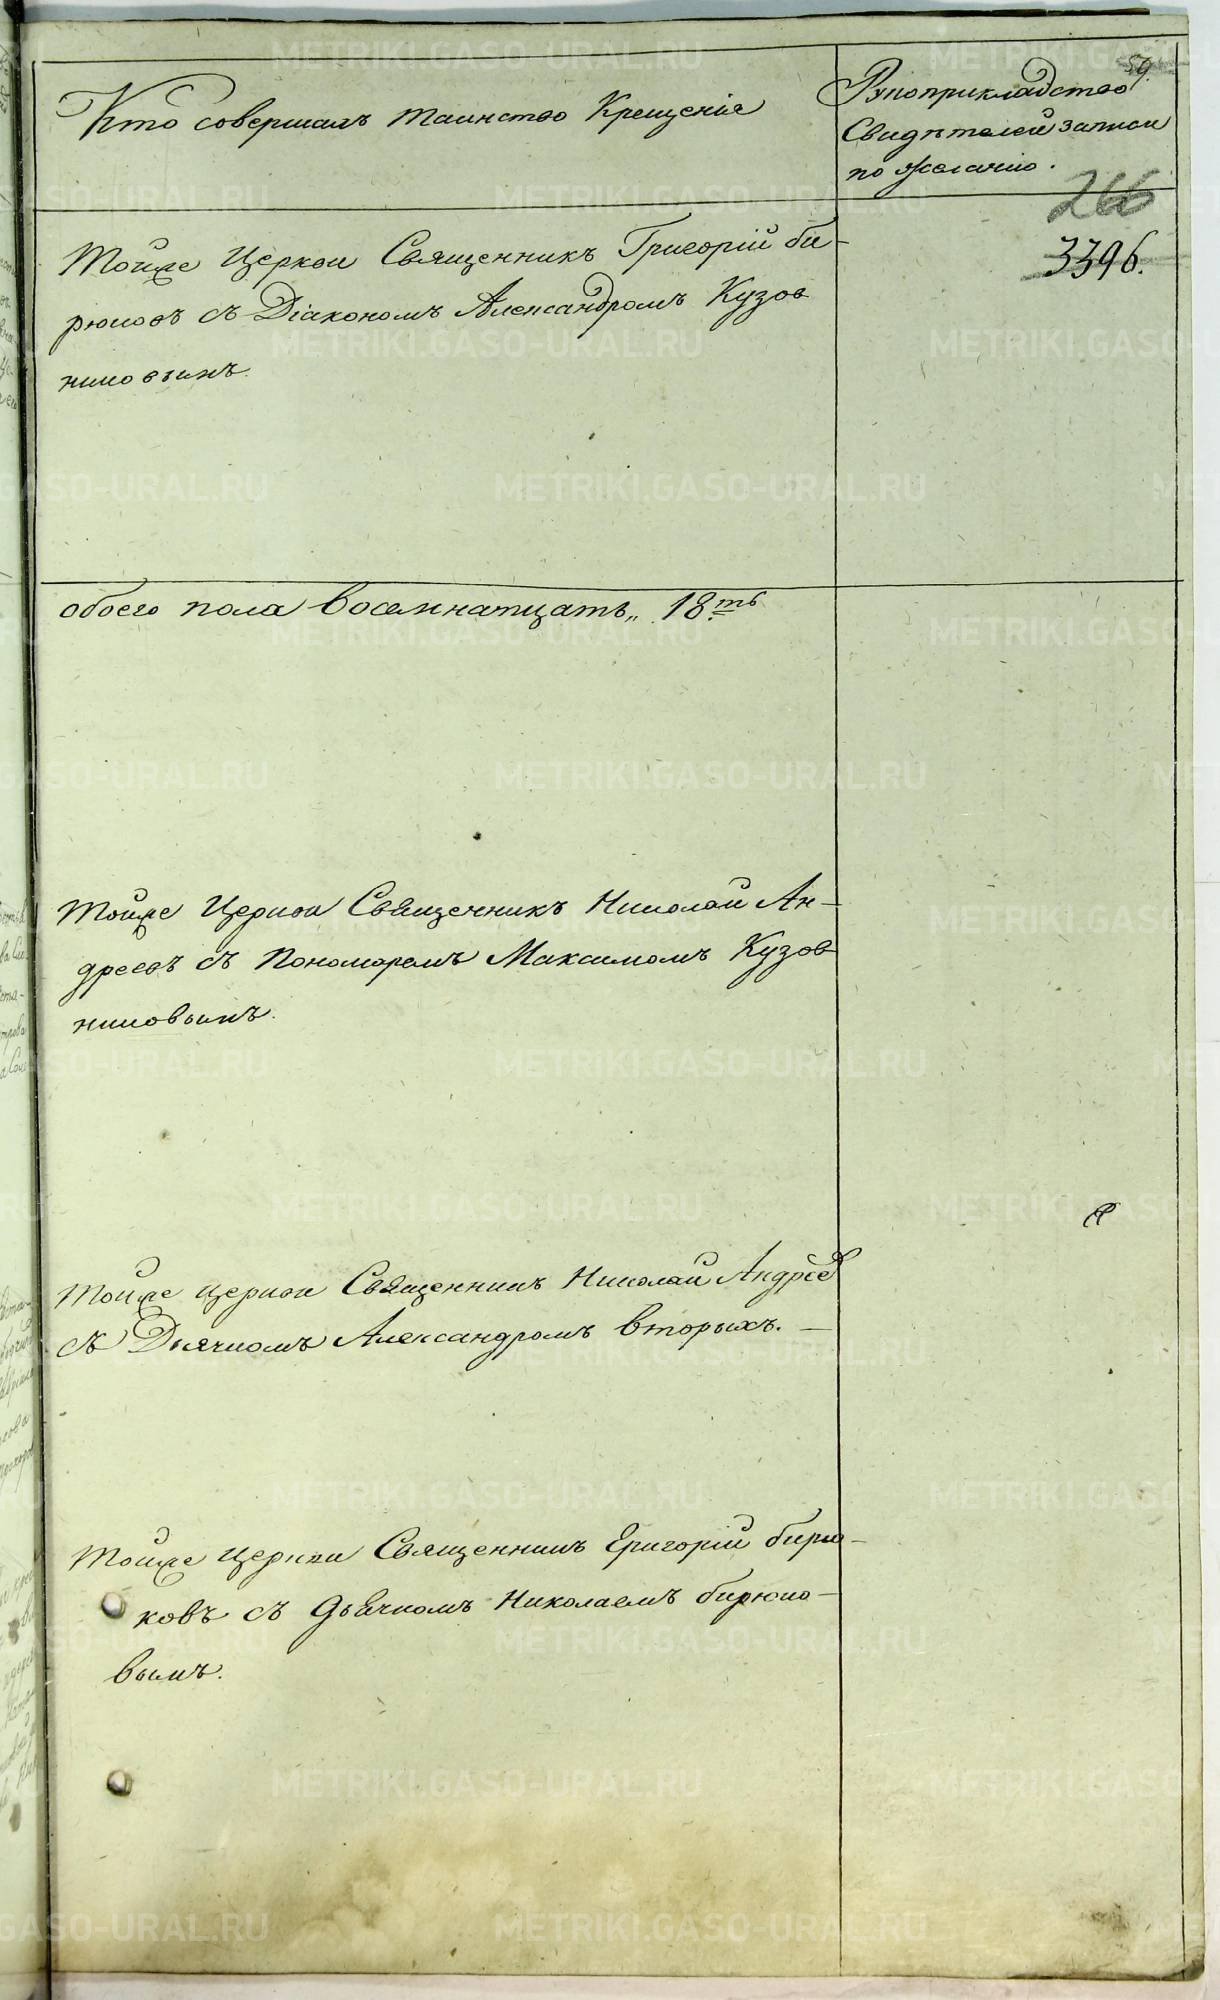 59.
Кто совершалъ таинство Крещенія
Рукоприкладство
Свидѣтелей записи
по желанію.
266
3396.
Тойже Церкви Священникъ Григорій Би-
рюковъ съ Діакономъ Александромъ Кузов
никовымъ.
обоего пола восемнатцать„ 18.ть
Тойже Церкви Священникъ Николай Ан-
дреевъ съ Пономаремъ Максимомъ Кузов
никовымъ.
Тойже Церкви Священникъ Николай Андрѣев
съ Дьячкомъ Александромъ Вторыхъ.
Тойже Церкви Священникъ Григорій Бирю-
ковъ съ Дьячкомъ Николаемъ Бирюко-
вымъ.
METRIKI.GASO-URAL.RU